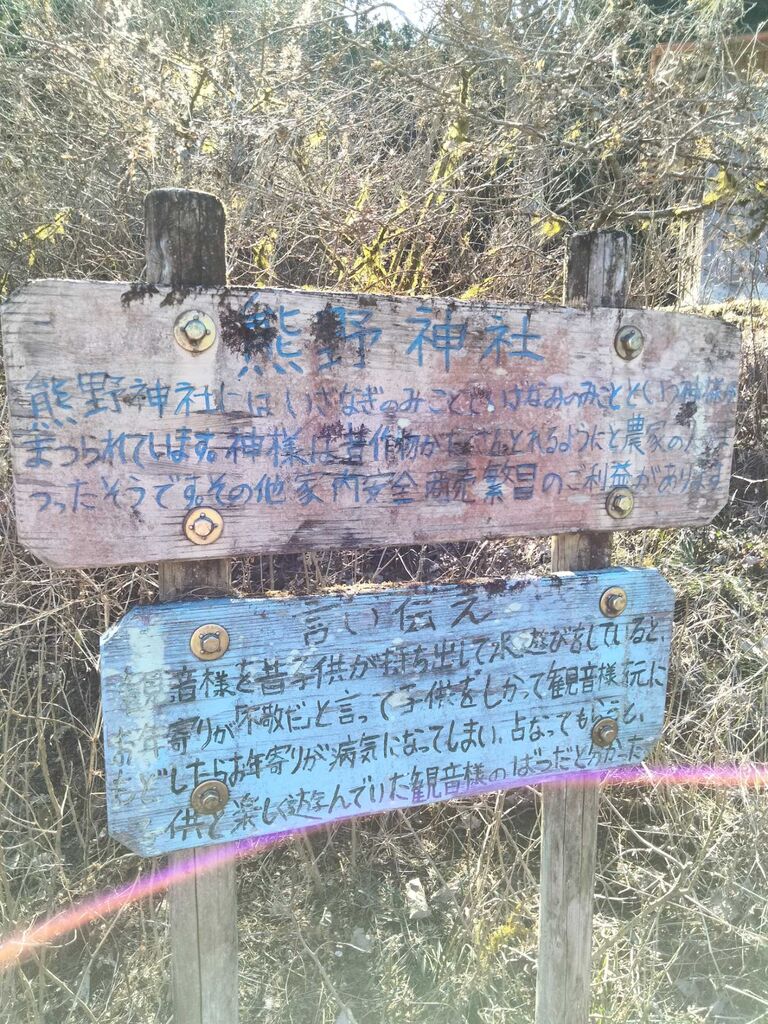 熊野神社
熊野神社にはいざなぎのみことといざなみのみことという神様が
まつられています。神様は昔作物がたくさんとれるようにと農家の人がま
つったそうです。その他家内安全商売繁昌のご利益があります
言い伝え
観音様を昔子供が持ち出して水遊びをしていると、
お年寄りが不敬だと言って子供をしかって観音様を元に
もどしたらお年寄りが病気になってしまい、占なってもらうと、
子供と楽しく遊んでいた観音様のばつだと分かった